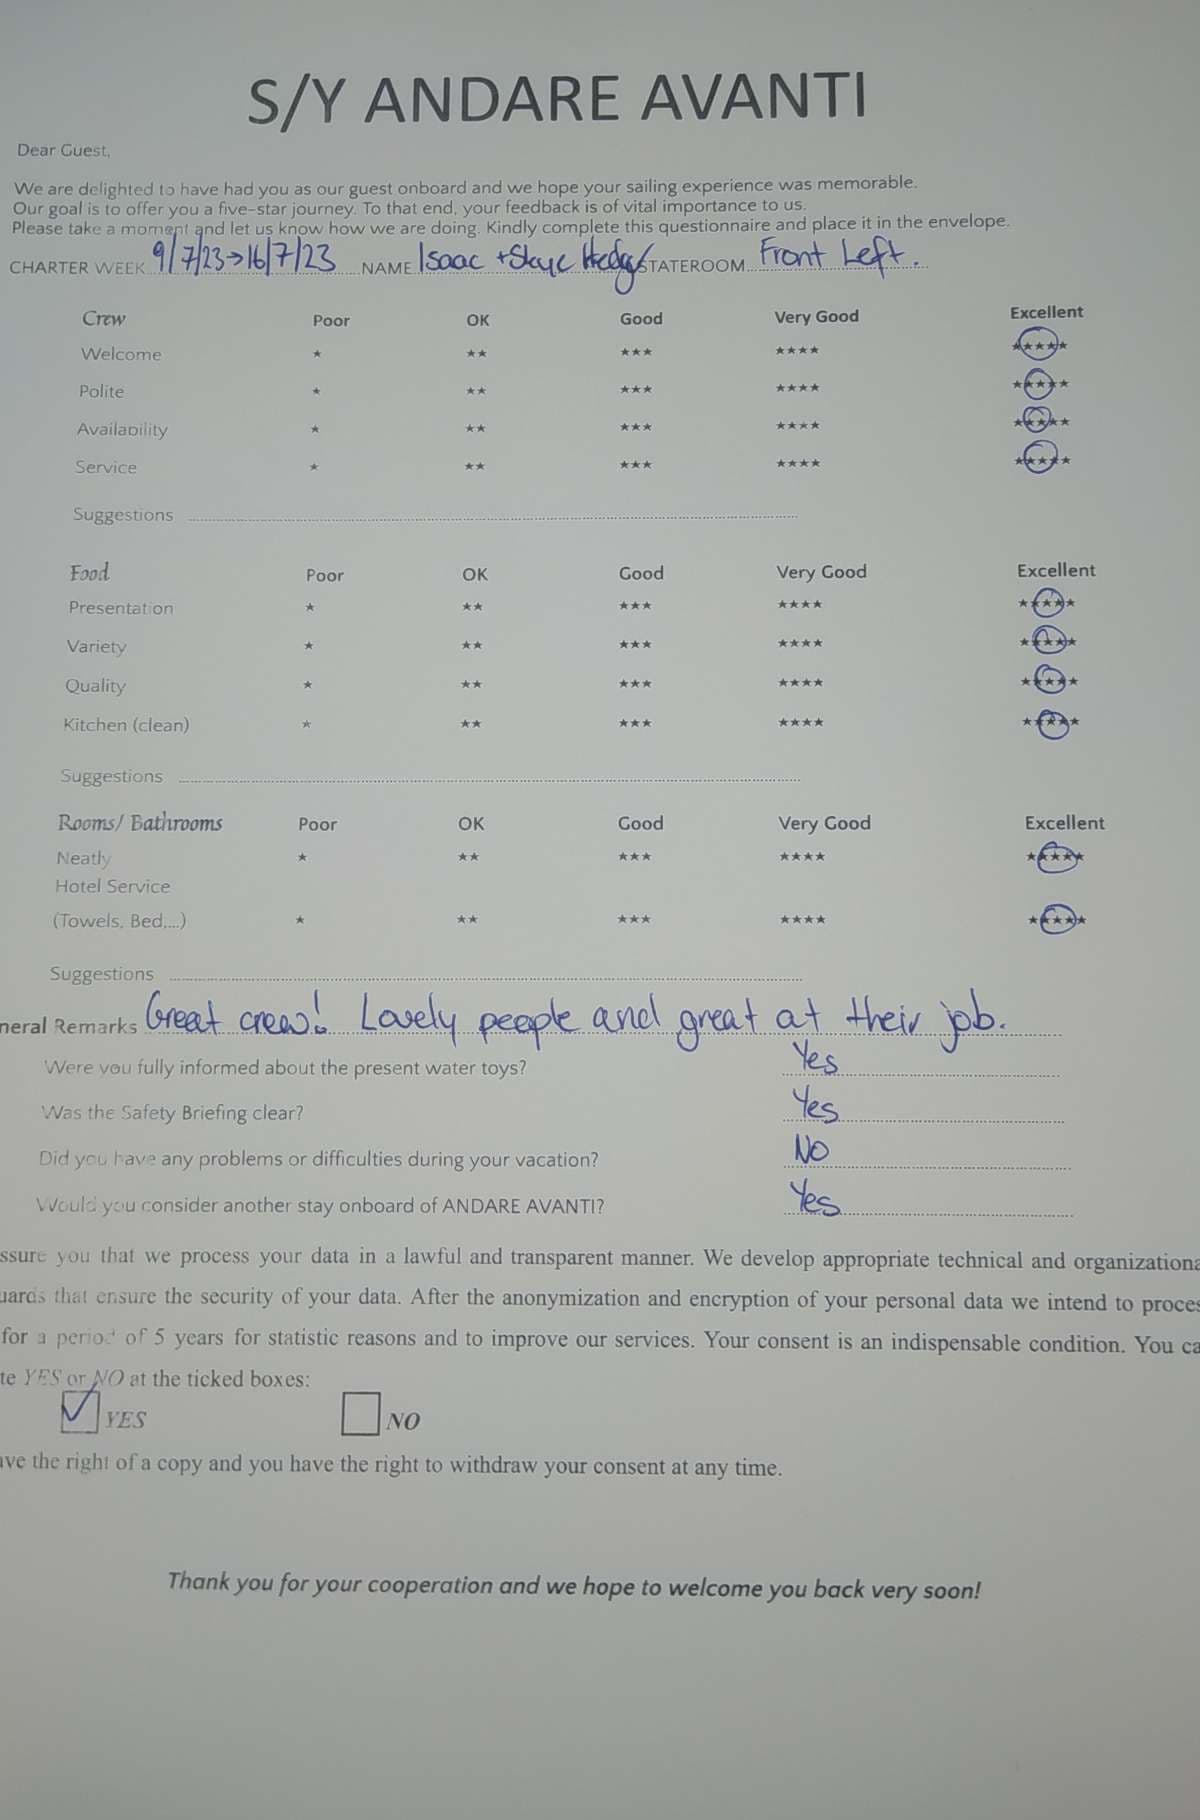 S/Y ANDARE AVANTI
Dear Guest,
We are delighted to have had you as our guest onboard and we hope your sailing experience was memorable.
Our goal is to offer you a five-star journey. To that end, your feedback is of vital importance to us.
Please take a moment and let us know how we are doing. Kindly complete this questionnaire and place it in the envelope.
CHARTER WEEK 9/7/23→16/7/23 NAME Isaac + Skye STATEROOM Front Left.
Crew Poor OK Good Very Good Excellent
Welcome ★ ★★ ★★★ ★★★★ ★★★★★
Polite ★ ★★ ★★★ ★★★★ ★★★★★
Availability ★ ★★ ★★★ ★★★★ ★★★★★
Service ★ ★★ ★★★ ★★★★ ★★★★★
Suggestions
Food Poor OK Good Very Good Excellent
Presentation ★ ★★ ★★★ ★★★★ ★★★★★
Variety ★ ★★ ★★★ ★★★★ ★★★★★
Quality ★ ★★ ★★★ ★★★★ ★★★★★
Kitchen (clean) ★ ★★ ★★★ ★★★★ ★★★★★
Suggestions
Rooms/ Bathrooms Poor OK Good Very Good Excellent
Neatly ★ ★★ ★★★ ★★★★ ★★★★★
Hotel Service
(Towels, Bed,...) ★ ★★ ★★★ ★★★★ ★★★★★
Suggestions
neral Remarks Great crew! Lovely people and great at their job.
Were you fully informed about the present water toys? Yes
Was the Safety Briefing clear? Yes
Did you have any problems or difficulties during your vacation? No
Would you consider another stay onboard of ANDARE AVANTI? Yes
ssure you that we process your data in a lawful and transparent manner. We develop appropriate technical and organizationa
uards that ensure the security of your data. After the anonymization and encryption of your personal data we intend to proces
for a period of 5 years for statistic reasons and to improve our services. Your consent is an indispensable condition. You ca
te YES or NO at the ticked boxes:
YES NO
ave the right of a copy and you have the right to withdraw your consent at any time.
Thank you for your cooperation and we hope to welcome you back very soon!